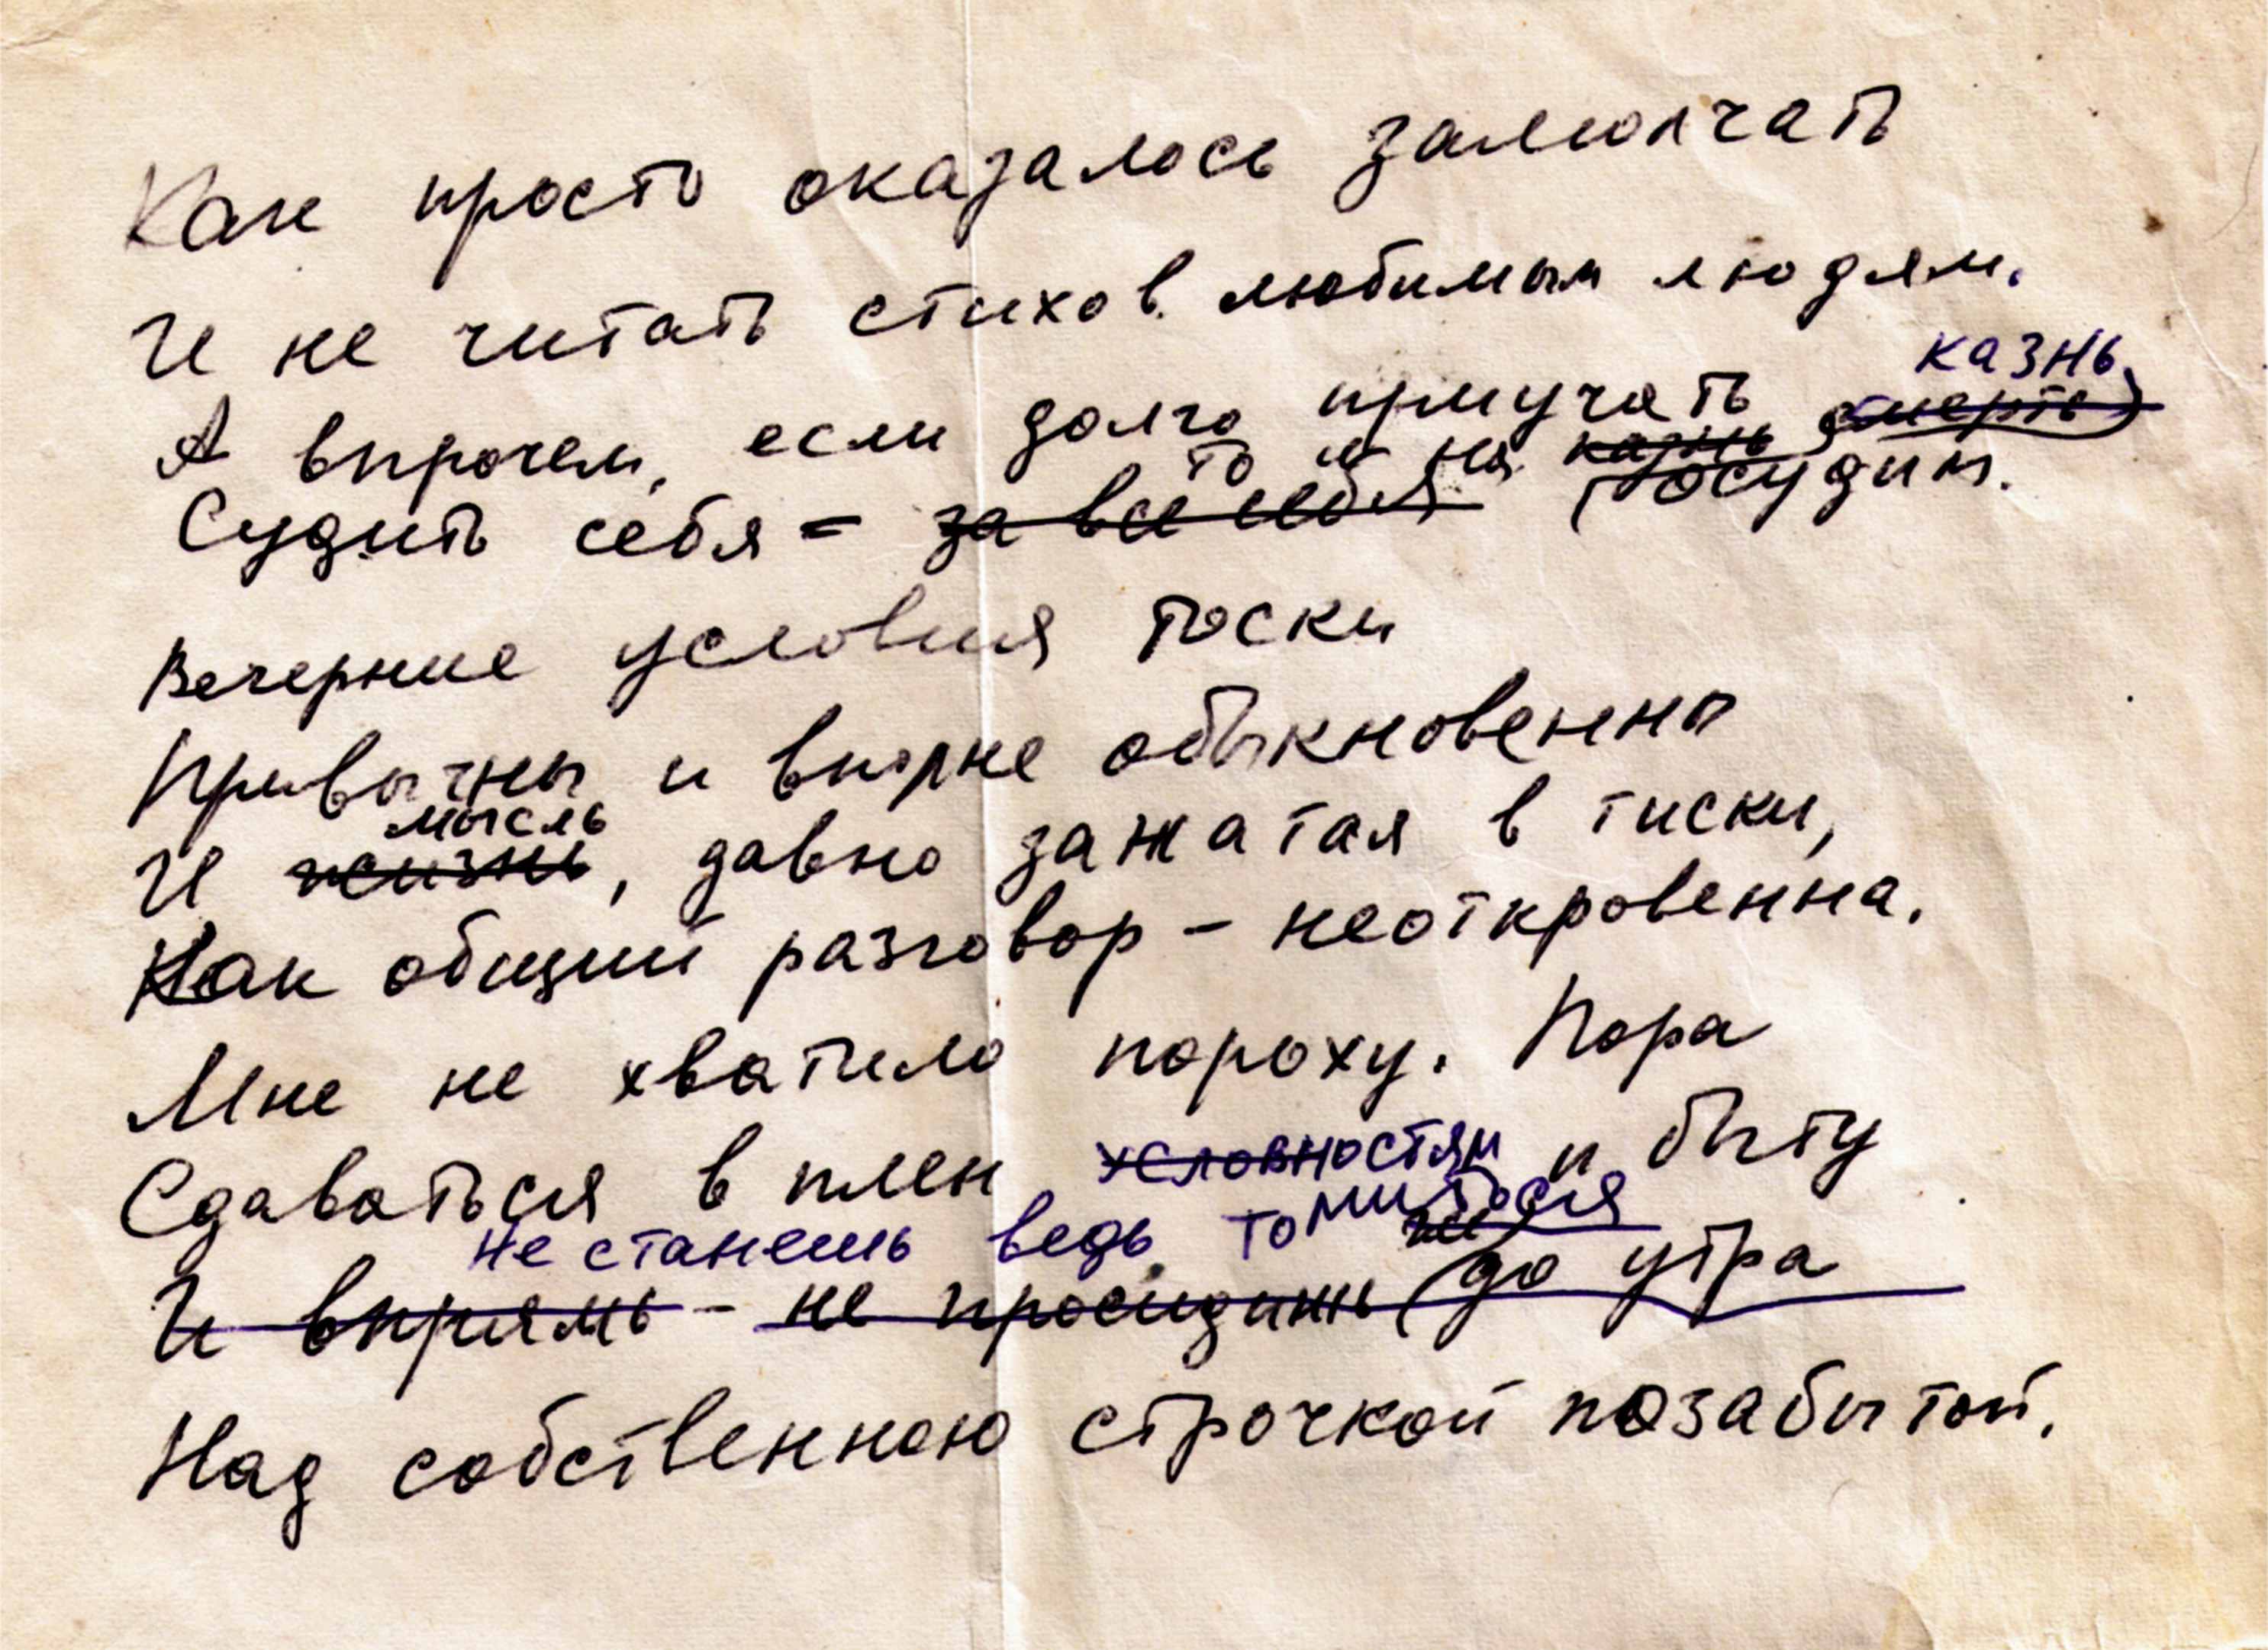 Как просто оказалось замолчать
И не читать стихов любимым людям.
казнь
А впрочем, если долго приучать смерть
то и на казнь
Судить себя – за все себя осудим.
Вечерние условия тоски
Привычны и вполне обыкновенны
мысль
И жизнь, давно зажатая в тиски,
Как общий разговор – неоткровенна.
Мне не хватило пороху. Пора
Сдаваться в плен условностям и быту
Не станешь ведь томиться
же
И впрямь – не просидишь до утра
Над собственною строчкой позабытой.